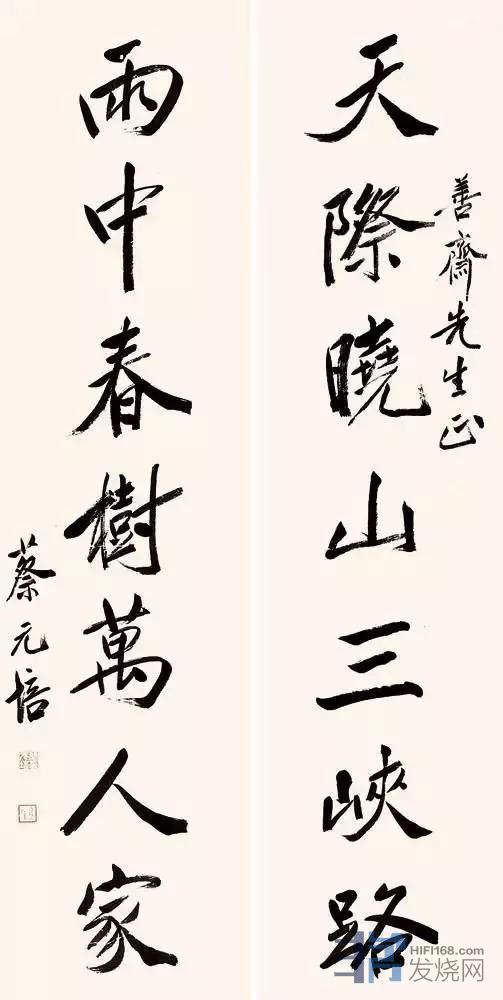 善齋先生正
天際曉山三峽路
雨中春樹萬人家
蔡元培
HIFI168.com
发烧网